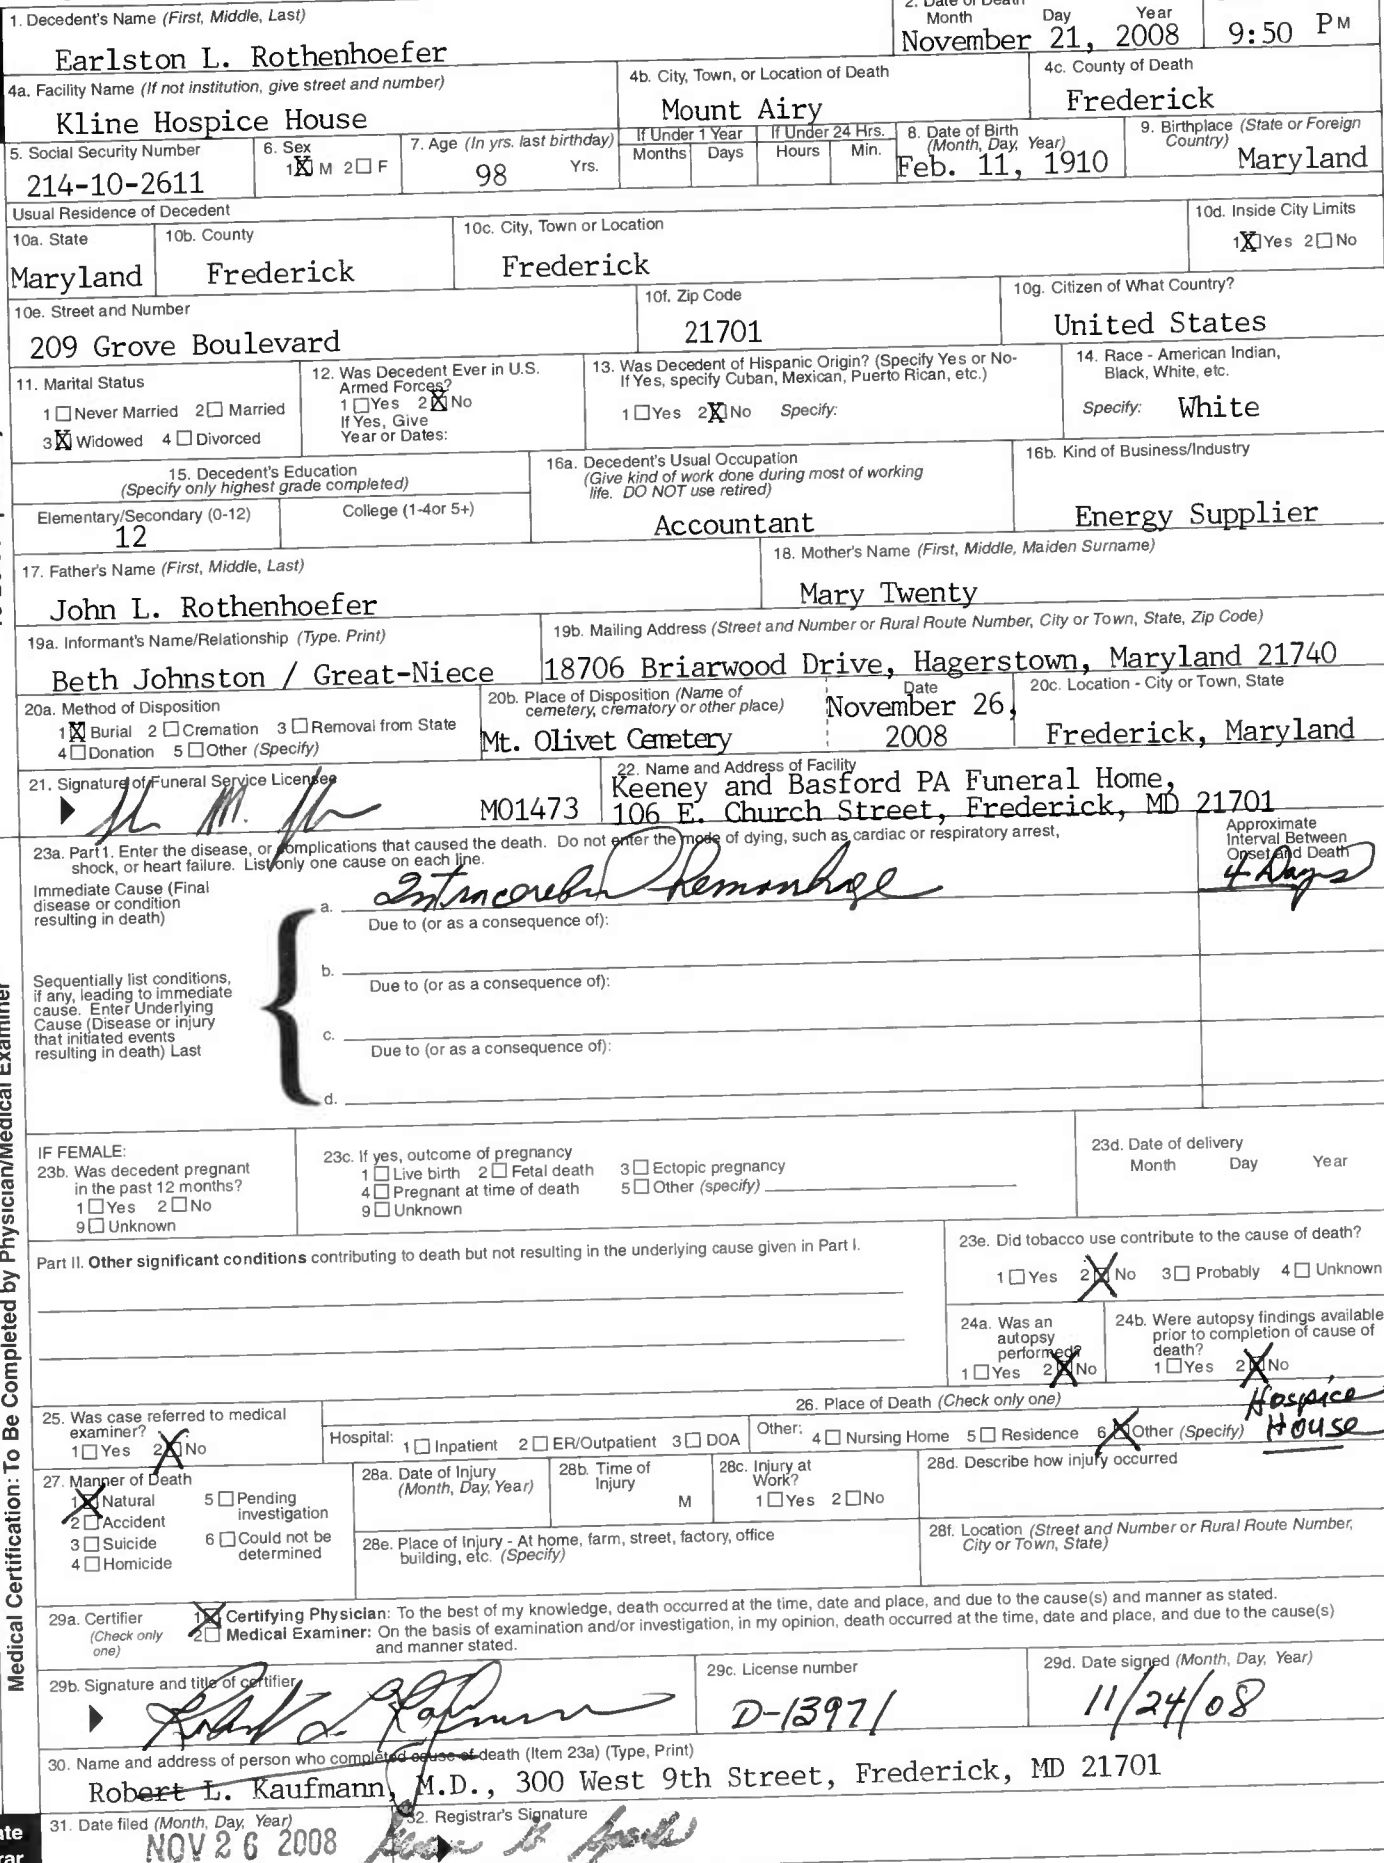 1. Decedent's Name (First, Middle, Last)
Earlston L. Rothenhoefer
2. Date of Death
Month Day Year
November 21, 2008
9:50 PM
4a. Facility Name (If not institution, give street and number)
Kline Hospice House
4b. City, Town, or Location of Death
Mount Airy
4c. County of Death
Frederick
5. Social Security Number
214-10-2611
6. Sex
1☒ M 2☐ F
7. Age (In yrs. last birthday)
98 Yrs.
If Under 1 Year
Months Days
If Under 24 Hrs.
Hours Min.
8. Date of Birth
(Month, Day, Year)
Feb. 11, 1910
9. Birthplace (State or Foreign
Country)
Maryland
Usual Residence of Decedent
10a. State
Maryland
10b. County
Frederick
10c. City, Town or Location
Frederick
10d. Inside City Limits
1☒ Yes 2☐ No
10e. Street and Number
209 Grove Boulevard
10f. Zip Code
21701
10g. Citizen of What Country?
United States
11. Marital Status
1☐ Never Married 2☐ Married
3☒ Widowed 4☐ Divorced
12. Was Decedent Ever in U.S.
Armed Forces?
1☐ Yes 2☒ No
If Yes, Give
Year or Dates:
13. Was Decedent of Hispanic Origin? (Specify Yes or No-
If Yes, specify Cuban, Mexican, Puerto Rican, etc.)
1☐ Yes 2☒ No Specify:
14. Race - American Indian,
Black, White, etc.
Specify: White
15. Decedent's Education
(Specify only highest grade completed)
Elementary/Secondary (0-12)
12
College (1-4or 5+)
16a. Decedent's Usual Occupation
(Give kind of work done during most of working
life. DO NOT use retired)
Accountant
16b. Kind of Business/Industry
Energy Supplier
17. Father's Name (First, Middle, Last)
John L. Rothenhoefer
18. Mother's Name (First, Middle, Maiden Surname)
Mary Twenty
19a. Informant's Name/Relationship (Type. Print)
Beth Johnston / Great-Niece
19b. Mailing Address (Street and Number or Rural Route Number, City or Town, State, Zip Code)
18706 Briarwood Drive, Hagerstown, Maryland 21740
20a. Method of Disposition
1☒ Burial 2☐ Cremation 3☐ Removal from State
4☐ Donation 5☐ Other (Specify)
20b. Place of Disposition (Name of
cemetery, crematory or other place)
Mt. Olivet Cemetery
Date
November 26,
2008
20c. Location - City or Town, State
Frederick, Maryland
21. Signature of Funeral Service Licensee
M01473
22. Name and Address of Facility
Keeney and Basford PA Funeral Home,
106 E. Church Street, Frederick, MD 21701
23a. Part 1. Enter the disease, or complications that caused the death. Do not enter the mode of dying, such as cardiac or respiratory arrest,
shock, or heart failure. List only one cause on each line.
Approximate
Interval Between
Onset and Death
Immediate Cause (Final
disease or condition
resulting in death)
a. Intracerebral Hemorrhage
4 Days
Due to (or as a consequence of):
Sequentially list conditions,
if any, leading to immediate
cause. Enter Underlying
Cause (Disease or injury
that initiated events
resulting in death) Last
b.
Due to (or as a consequence of):
c.
Due to (or as a consequence of):
d.
IF FEMALE:
23b. Was decedent pregnant
in the past 12 months?
1☐ Yes 2☐ No
9☐ Unknown
23c. If yes, outcome of pregnancy
1☐ Live birth 2☐ Fetal death 3☐ Ectopic pregnancy
4☐ Pregnant at time of death 5☐ Other (specify)
9☐ Unknown
23d. Date of delivery
Month Day Year
Part II. Other significant conditions contributing to death but not resulting in the underlying cause given in Part I.
23e. Did tobacco use contribute to the cause of death?
1☐ Yes 2☒ No 3☐ Probably 4☐ Unknown
24a. Was an
autopsy
performed?
1☐ Yes 2☒ No
24b. Were autopsy findings available
prior to completion of cause of
death?
1☐ Yes 2☒ No
25. Was case referred to medical
examiner?
1☐ Yes 2☒ No
26. Place of Death (Check only one)
Hospital: 1☐ Inpatient 2☐ ER/Outpatient 3☐ DOA Other: 4☐ Nursing Home 5☐ Residence 6☒ Other (Specify)
Hospice
House
27. Manner of Death
1☒ Natural
2☐ Accident
3☐ Suicide
4☐ Homicide
5☐ Pending
investigation
6☐ Could not be
determined
28a. Date of Injury
(Month, Day, Year)
28b. Time of
Injury
M
28c. Injury at
Work?
1☐ Yes 2☐ No
28d. Describe how injury occurred
28e. Place of Injury - At home, farm, street, factory, office
building, etc. (Specify)
28f. Location (Street and Number or Rural Route Number,
City or Town, State)
29a. Certifier
(Check only
one)
1☒ Certifying Physician: To the best of my knowledge, death occurred at the time, date and place, and due to the cause(s) and manner as stated.
2☐ Medical Examiner: On the basis of examination and/or investigation, in my opinion, death occurred at the time, date and place, and due to the cause(s)
and manner stated.
29b. Signature and title of certifier
Robert L. Kaufmann
29c. License number
D-13971
29d. Date signed (Month, Day, Year)
11/24/08
30. Name and address of person who completed cause of death (Item 23a) (Type, Print)
Robert L. Kaufmann, M.D., 300 West 9th Street, Frederick, MD 21701
31. Date filed (Month, Day, Year)
NOV 26 2008
32. Registrar's Signature
Medical Certification: To Be Completed by Physician/Medical Examiner